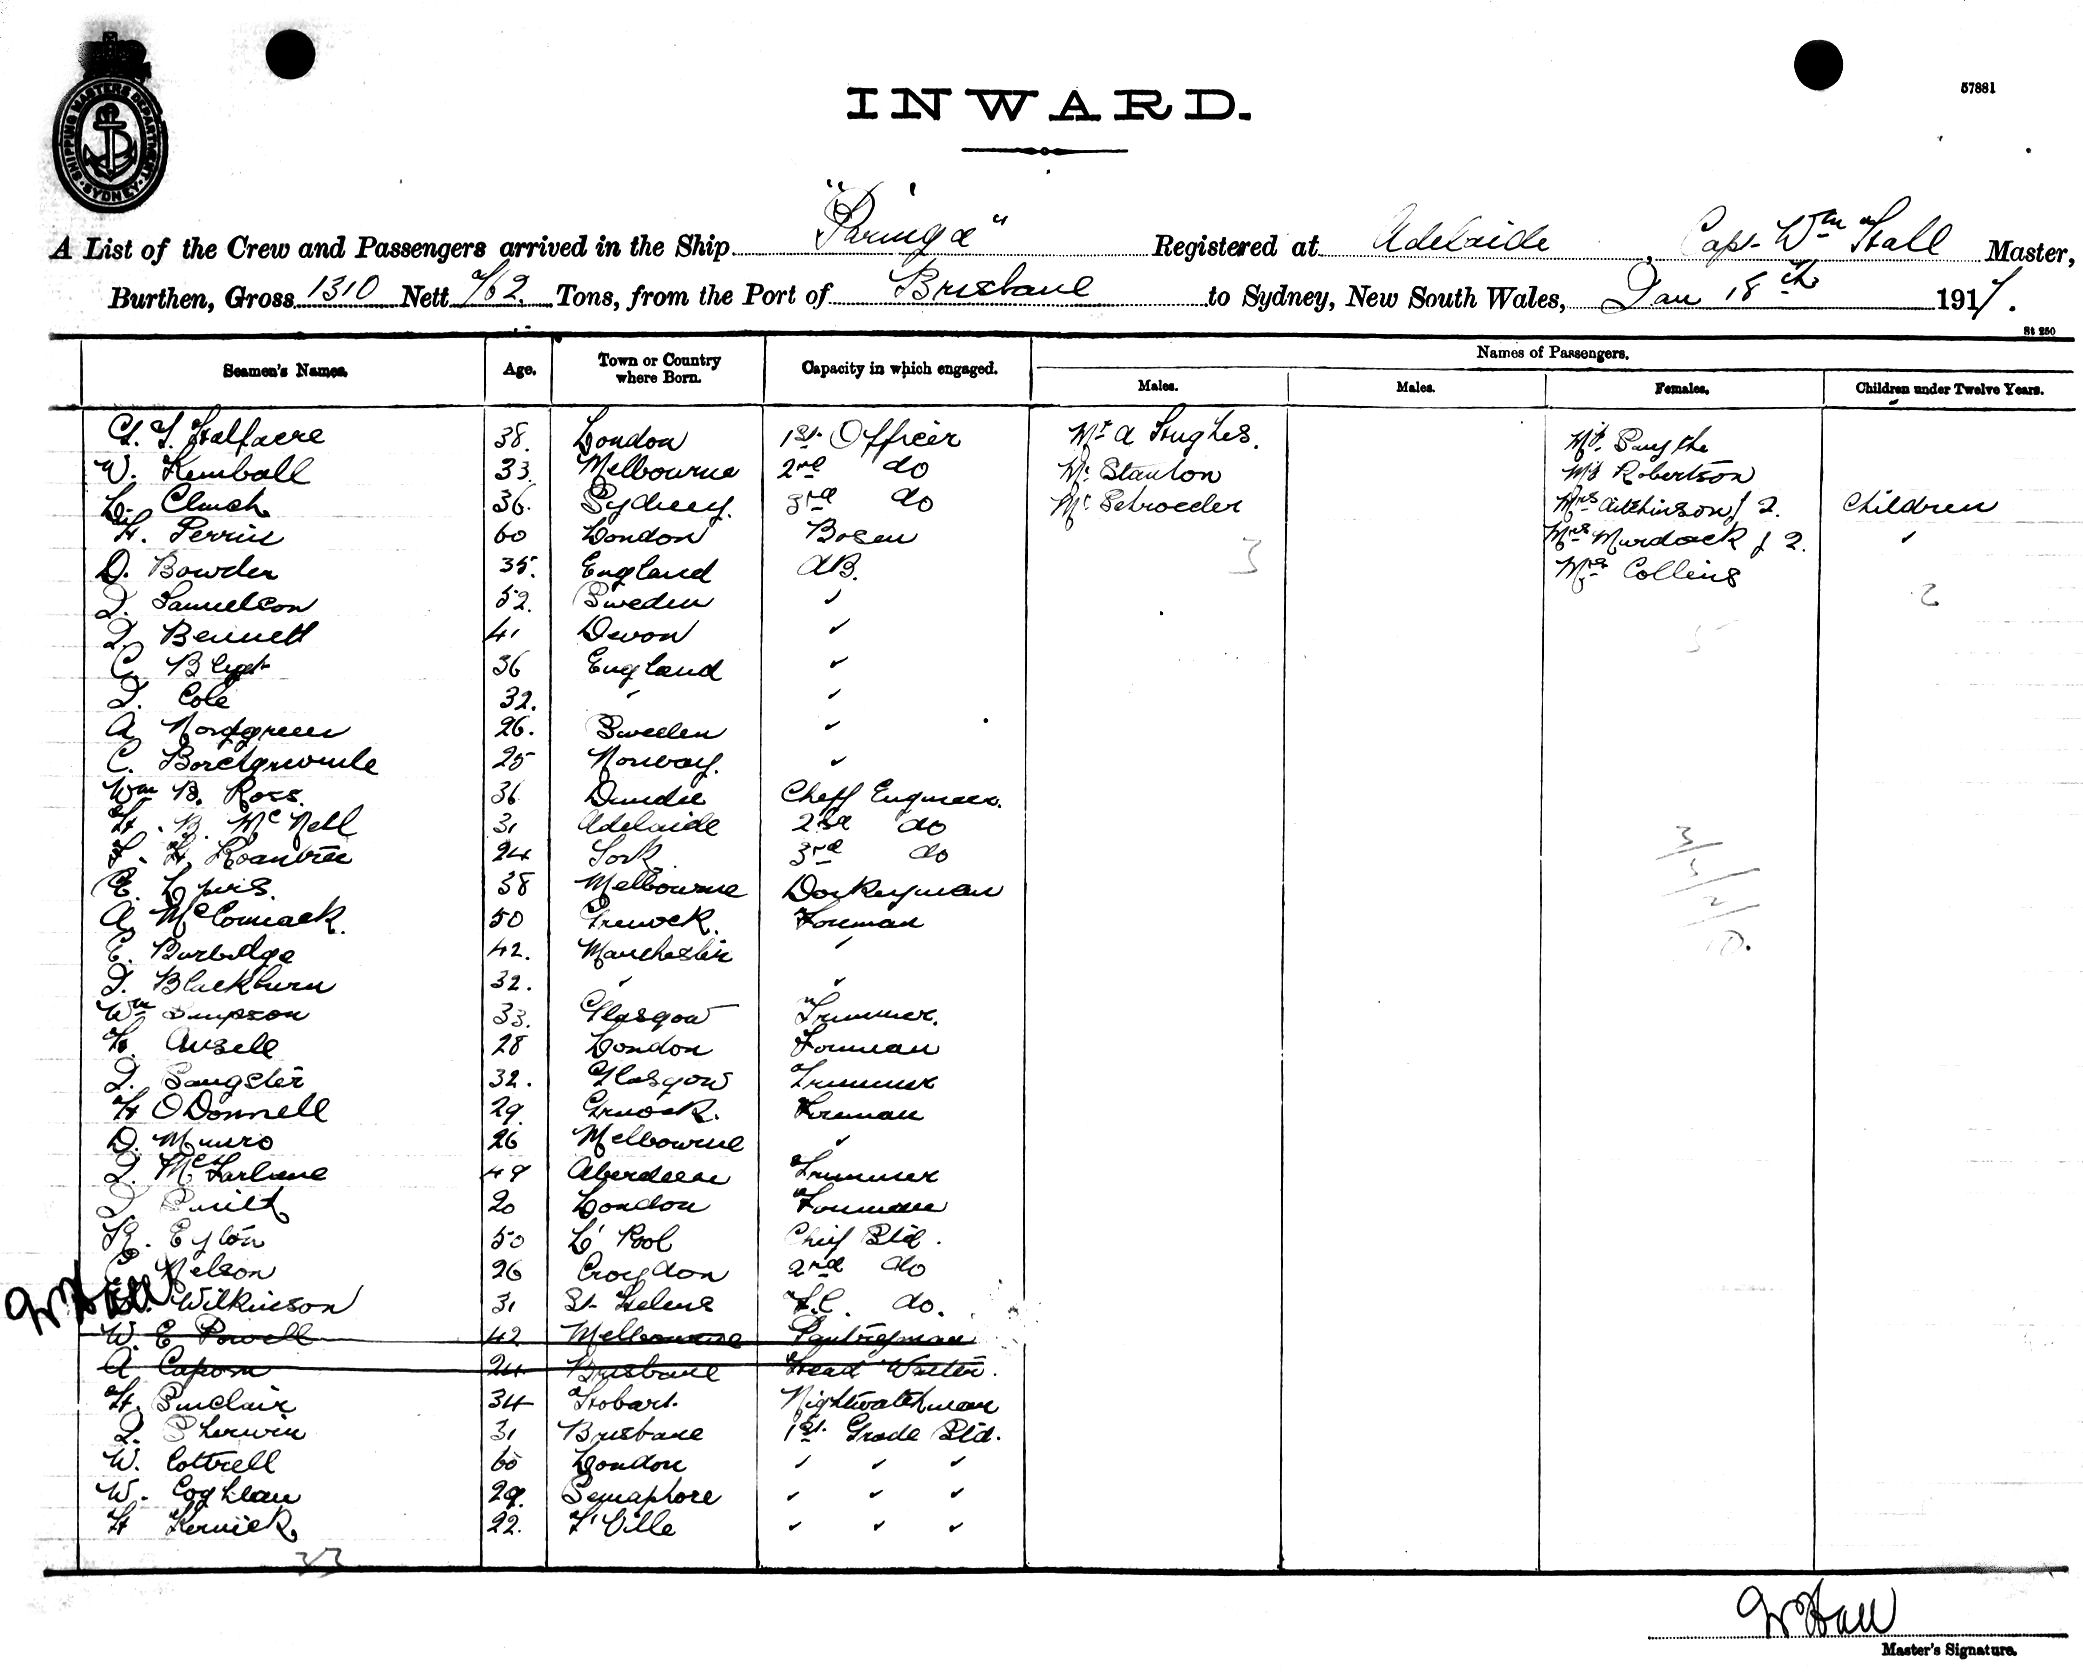 SHIPPING MASTERS DEPARTMENT SYDNEY
INWARD.
57881
A List of the Crew and Passengers arrived in the Ship "Paringa" Registered at Adelaide, Capt Wm Hall Master,
Burthen, Gross 1310 Nett 762 Tons, from the Port of Brisbane to Sydney, New South Wales, Jan 18th 1917.
St 250
Seamen's Names. Age. Town or Country where Born. Capacity in which engaged. Names of Passengers.
Males. Males. Females. Children under Twelve Years.
Halfacre 38. London 1st Officer Mr A Hughes. Smythe
W. Kemball 33. Melbourne 2nd do Mr Stanton Robertson
L. Clinch 36. Sydney. 3rd do Mr Schroeder Mrs Aitchinson & 2. Children
H. Perrin 60 London Bosun Mrs Murdock & 2. "
D. Bowden 35. England AB. 3 Mrs Collins
J. Samuelson 52. Sweden " 2
J. Bennett 41 Devon " 5
C. 36 England "
J. Cole 32. " "
A Nordgreen 26. Sweden "
C. 25 Norway. "
Wm B. Ross. 36 Dundee Chief Engineer.
H. B. McNell 31 Adelaide 2nd do
Roantree 24 York 3rd do
E. Lewis. 38 Melbourne Donkeyman
A. McCormack. 50 Greenock. Fireman
E. Burbidge 42. Manchester "
J. Blackburn 32. " "
Wm Simpson 33. Glasgow Trimmer.
H. Ansell 28 London Fireman
J. Sangster 32. Glasgow Trimmer
H O'Donnell 29. Greenock. Fireman
D. Munro 26 Melbourne "
J. McFarlane 49 Aberdeen Trimmer
J Smith 20 London Fireman
R. Eyton 50 L'Pool Chief Std.
Nelson 26 Croydon 2nd do
W Hall
Wilkinson 31 St Helens F.C. do.
W. E Powell 42 Melbourne Pantryman
A Caporn 24 Brisbane Head Waiter.
H. Sinclair 34 Hobart. Nightwatchman
J. Sherwin 31 Brisbane 1st Grade Std.
W. Cottrell 60 London " " "
W. Coghlan 29. Semaphore " " "
H Kernick 22. T'Ville " " "
33
W Hall
Master's Signature.